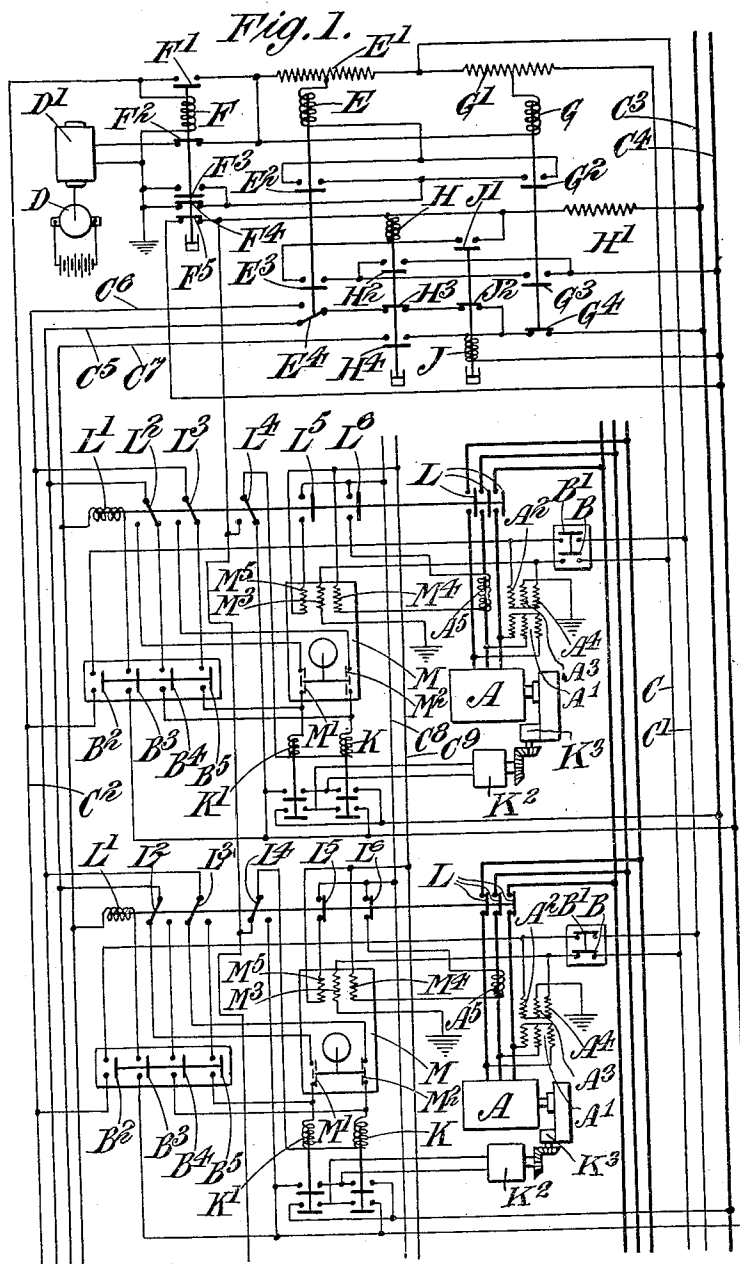 Fig. 1.
F¹
E¹
D¹
F²
F
E
G¹
G
C³
C⁴
F³
E²
G²
D
H
J¹
F⁴
H¹
F⁵
E³
H²
H³
J²
G³
G⁴
C⁶
C⁵
C⁷
E⁴
H⁴
J
L¹
L²
L³
L⁴
L⁵
L⁶
L
A²
B¹
B
M⁵
M³
M⁴
A⁵
A⁴
A³
A¹
M
A
M²
C
C¹
B²
B³
B⁴
B⁵
M¹
K
C⁸
C⁹
K³
C²
K¹
K²
L¹
L²
L³
L⁴
L⁵
L⁶
L
A²
B¹
B
M⁵
M³
M⁴
A⁵
A⁴
A³
A¹
M
A
M²
B²
B³
B⁴
B⁵
M¹
K
K³
K¹
K²